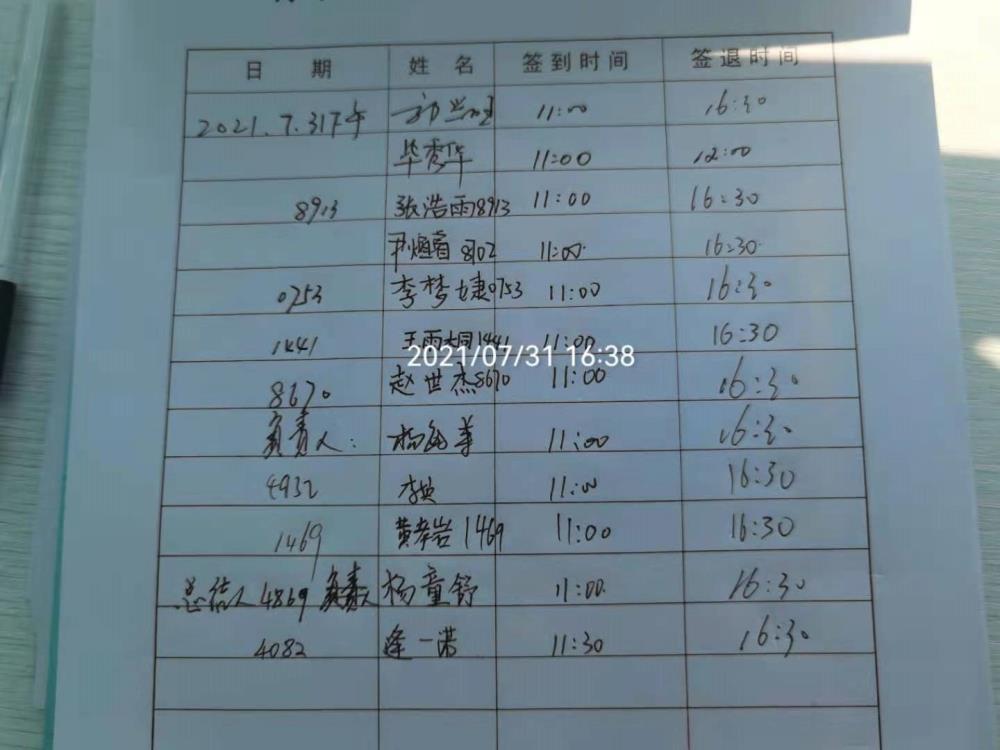 日 期 姓 名 签到时间 签退时间
2021.7.31下午 11:00 16:30
毕秀华 11:00 12:00
8913 张浩雨8913 11:00 16:30
尹 8702 11:00 16:30
0753 李梦婕0753 11:00 16:30
1441 王雨桐1441 11:00 16:30
2021/07/31 16:38
8670 赵世杰8670 11:00 16:30
负责人: 杨 11:00 16:30
4932 11:00 16:30
1469 黄孝岩1469 11:00 16:30
总结人4869 负责人 杨童舒 11:00 16:30
4082 逄一诺 11:30 16:30